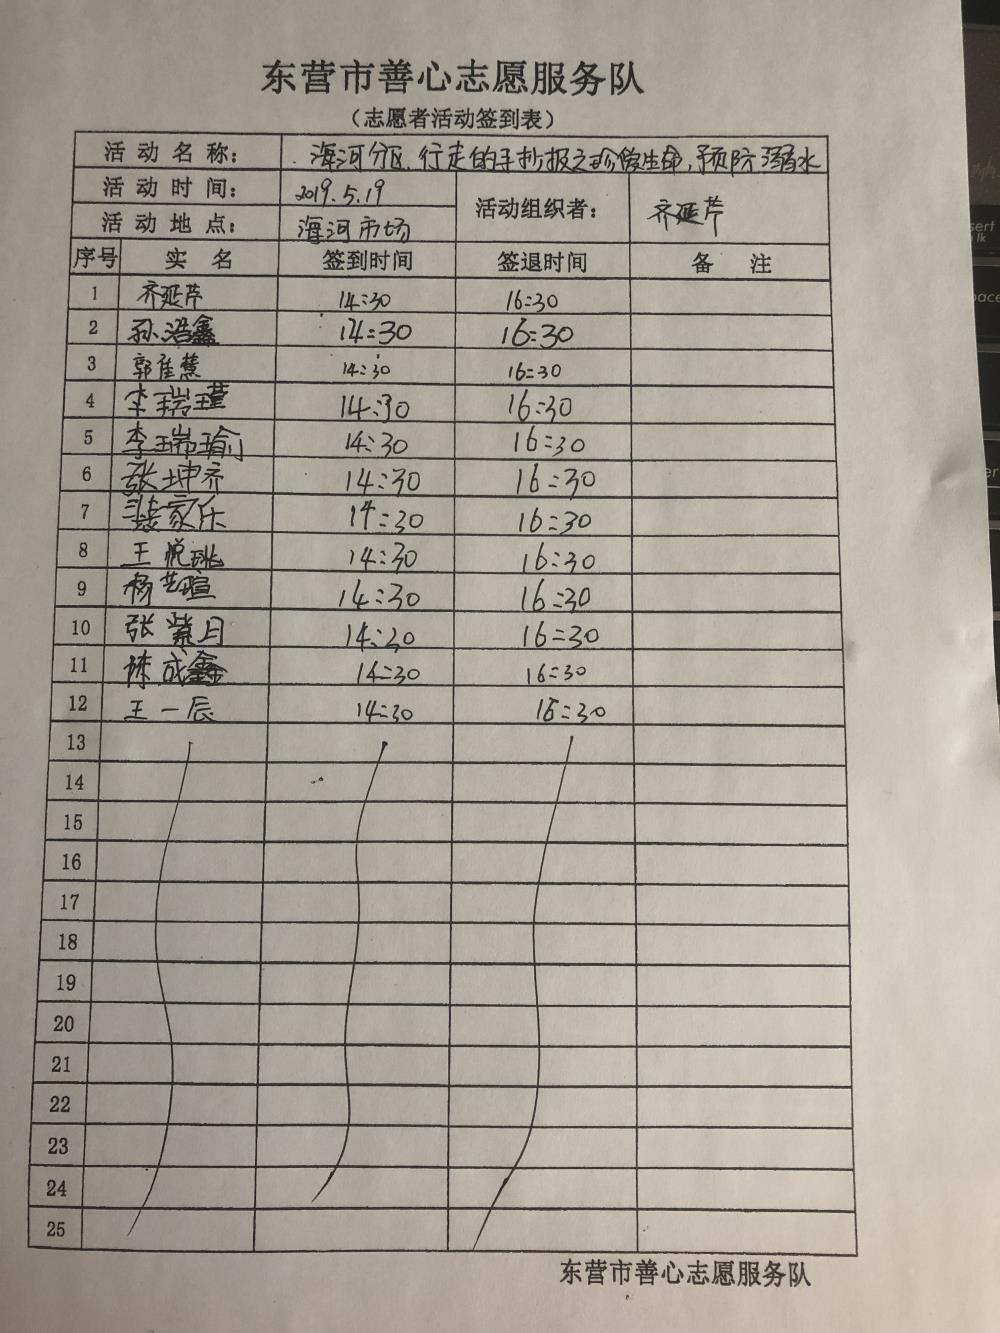 东营市善心志愿服务队
（志愿者活动签到表）
活动名称： 海河分区.行走的手抄报之珍俊生命,预防溺水
活动时间： 2019.5.19 活动组织者： 齐延芹
活动地点： 海河市场
序号 实名 签到时间 签退时间 备注
1 齐延芹 14:30 16:30
2 孙浩鑫 14:30 16:30
3 郭佳慧 14:30 16:30
4 李瑞瑾 14:30 16:30
5 李瑞瑜 14:30 16:30
6 张坤齐 14:30 16:30
7 裴家乐 14:30 16:30
8 王悦珧 14:30 16:30
9 杨艺暄 14:30 16:30
10 张紫月 14:30 16:30
11 陈成鑫 14:30 16:30
12 王一辰 14:30 16:30
13
14
15
16
17
18
19
20
21
22
23
24
25
东营市善心志愿服务队